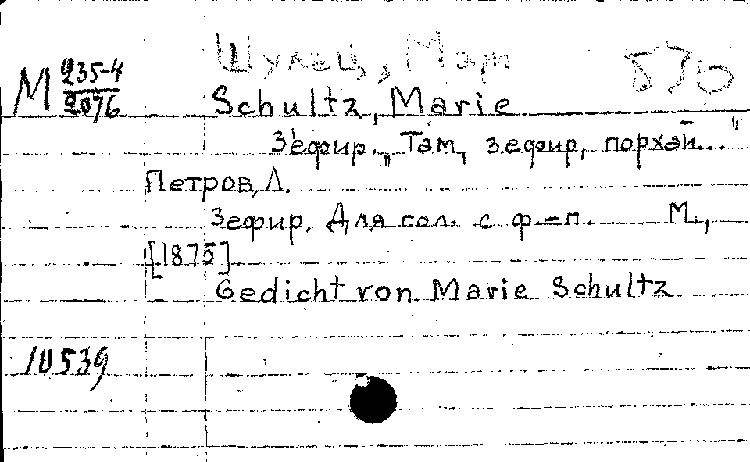 Шульц, Мар
870
М 235-4
2076
Schultz, Marie
Зефир. „Там, зефир, порхай..."
Петров, Л.
Зефир. Для гол. с ф-п. М.,
[1875]
Gedicht von Marie Schultz
10539